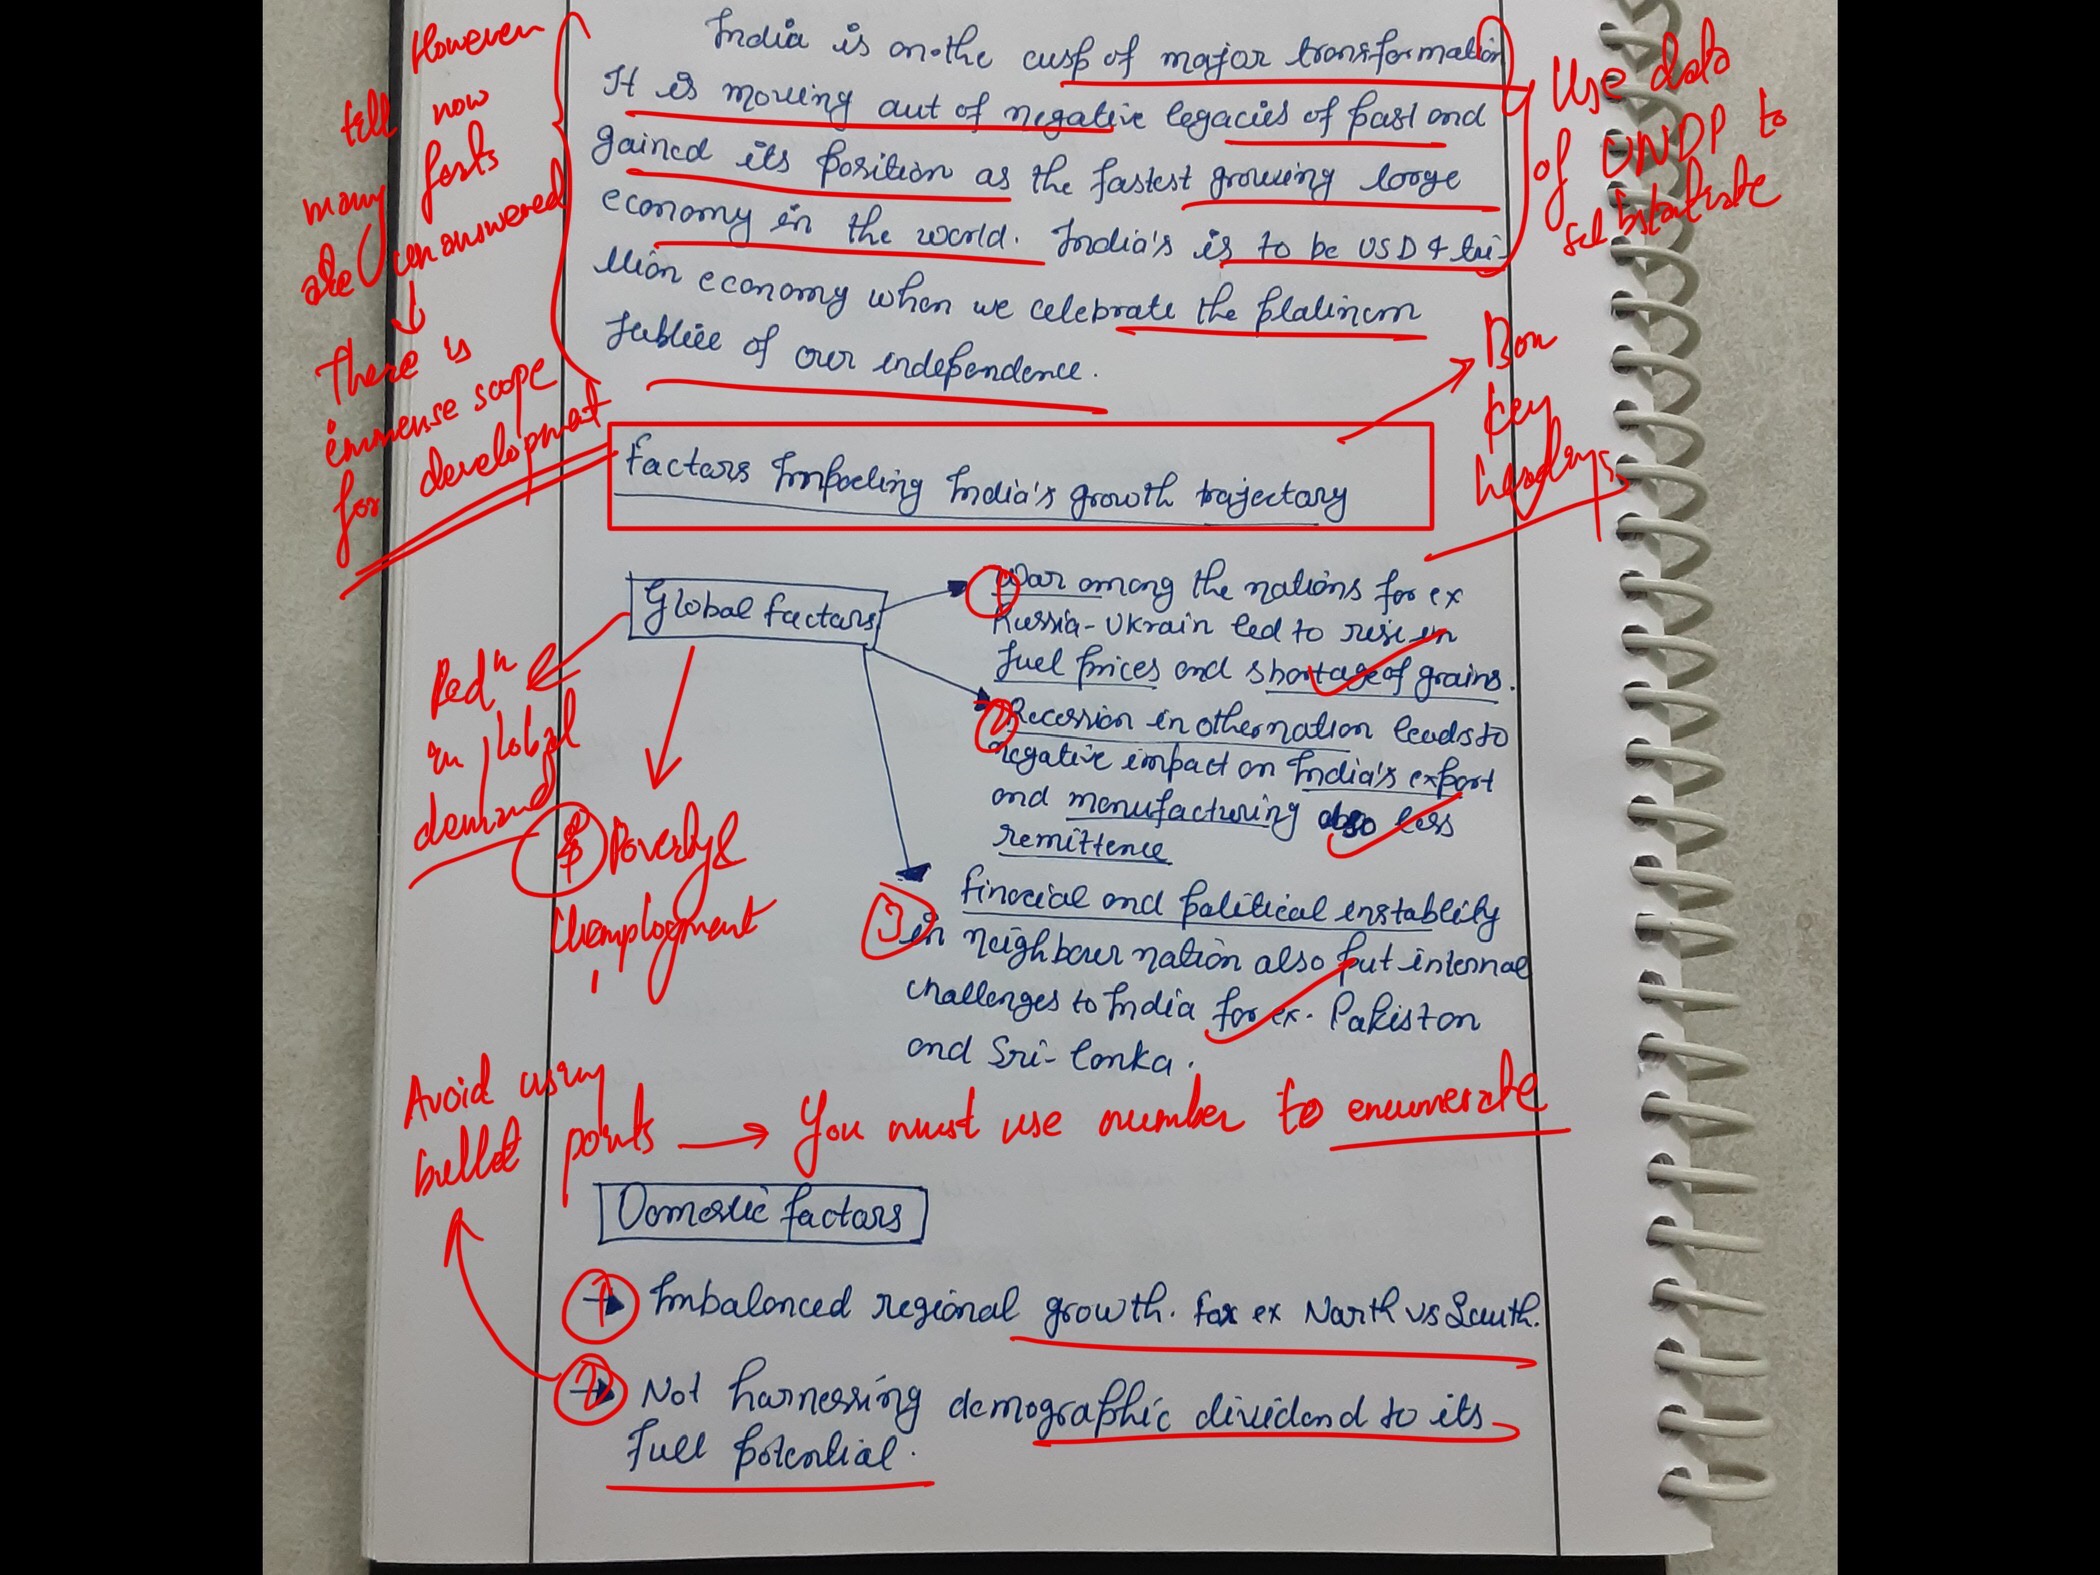 India is on the cusp of major transformation
It is moving out of negative legacies of past and
gained its position as the fastest growing large
economy in the world. India's is to be USD 4 tri-
llion economy when we celebrate the platinum
Jubliee of our independence.
However
till now
many
are unanswered
There is
immense scope
for development
Use data
of UNDP to
Box
key
headings
Factors Impacting India's growth trajectory
Global factors
1 War among the nations for ex
Russia-Ukrain led to rise in
fuel prices and shortage of grains.
2 Recession in other nation leads to
negative impact on India's export
and manufacturing also less
remittence
3 Finacial and political instablity
in neighbour nation also put internal
challenges to India for ex. Pakistan
and Sri-Lanka.
Redn
in global
demand
Poverty &
Unemployment
Avoid using
bullet points → You must use number to enumerate
Domestic factors
1 Imbalanced regional growth. For ex North vs South.
2 Not harnessing demographic dividend to its
full potential.